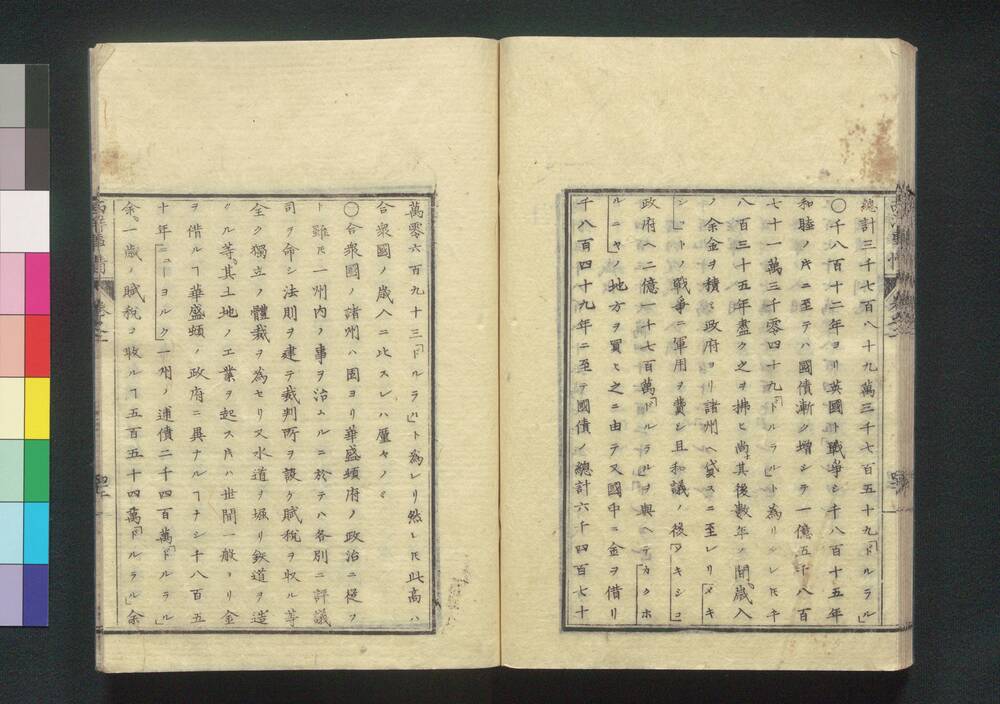 總計三千七百八十九萬三千七百五十九「ドルラル」
〇千八百十二年ヨリ英國ト戰爭シ千八百十五年
和睦ノ𪜈ニ至テハ國債漸ク增シテ一億五千八百
七十一萬三千零四十九「ドルラル」ト為リシレ𪜈千
八百三十五年盡ク之ヲ拂ヒ尚其後數年ノ間歳入
ノ余金ヲ積ミ政府ヨリ諸州ヘ貸スニ至レリ「メキ
シコ」トノ戰爭ニ軍用ヲ費シ且和議ノ後「メキシコ」
政府ヘ二億一千七百萬「ドルラル」ヲ與ヘテ「カリホ
ルニヤ」ノ地方ヲ買ヒ之ニ由テ又國中ニ金ヲ借リ
千八百四十九年ニ至テ國債ノ總計六千四百七十
萬零六百九十三「ドルラル」ト為レリ然レ𪜈此高ハ
合衆國ノ歳入ニ比スレハ厘ヤノミ
〇合衆國ノ諸州ハ固ヨリ華盛頓府ノ政治ニ從フ
ト雖𪜈一州内ノ事ヲ治ムルニ於テハ各別ニ評議
司ヲ命シ法則ヲ建テ裁判所ヲ設ケ賦稅ヲ收ル等
全ク獨立ノ體裁ヲ為セリ又水道ヲ堀リ鉄道ヲ造
ル等其土地ノ工業ヲ起スハ世間一般ヨリ金
ヲ借ルヿ華盛頓ノ政府ニ異ナルヿナシ千八百五
十年「ニューヨルク」一州ノ逋債二千四百萬「ドルラル」
余一歳ノ賦稅ヲ收ルヿ五百五十四萬「ドルラル」余